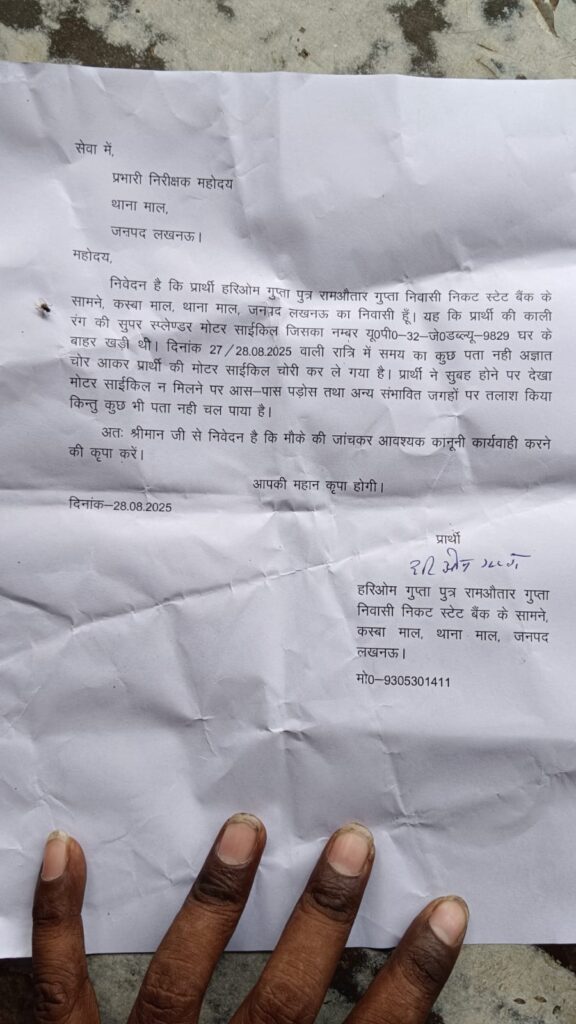 सेवा में,
प्रभारी निरीक्षक महोदय
थाना माल,
जनपद लखनऊ।
महोदय,
निवेदन है कि प्रार्थी हरिओम गुप्ता पुत्र रामऔतार गुप्ता निवासी निकट स्टेट बैंक के
सामने, कस्बा माल, थाना माल, जनपद लखनऊ का निवासी हूँ। यह कि प्रार्थी की काली
रंग की सुपर स्प्लेण्डर मोटर साईकिल जिसका नम्बर यू0पी0–32–जे0डब्ल्यू–9829 घर के
बाहर खड़ी थी। दिनांक 27/28.08.2025 वाली रात्रि में समय का कुछ पता नही अज्ञात
चोर आकर प्रार्थी की मोटर साईकिल चोरी कर ले गया है। प्रार्थी ने सुबह होने पर देखा
मोटर साईकिल न मिलने पर आस–पास पड़ोस तथा अन्य संभावित जगहों पर तलाश किया
किन्तु कुछ भी पता नही चल पाया है।
अतः श्रीमान जी से निवेदन है कि मौके की जांचकर आवश्यक कानूनी कार्यवाही करने
की कृपा करें।
आपकी महान कृपा होगी।
दिनांक–28.08.2025
प्रार्थी
हरिओम गुप्ता
हरिओम गुप्ता पुत्र रामऔतार गुप्ता
निवासी निकट स्टेट बैंक के सामने,
कस्बा माल, थाना माल, जनपद
लखनऊ।
मो0–9305301411